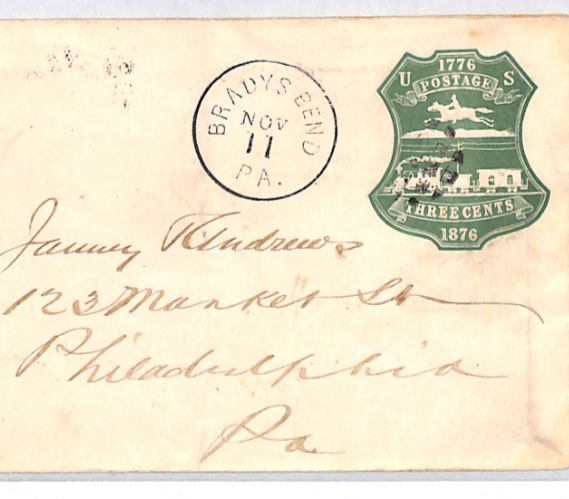 1776
U S
POSTAGE
BRADYS BEND
NOV
11
PA.
THREE CENTS
1876
Janney & Andrews
123 Market St
Philadelphia
Pa